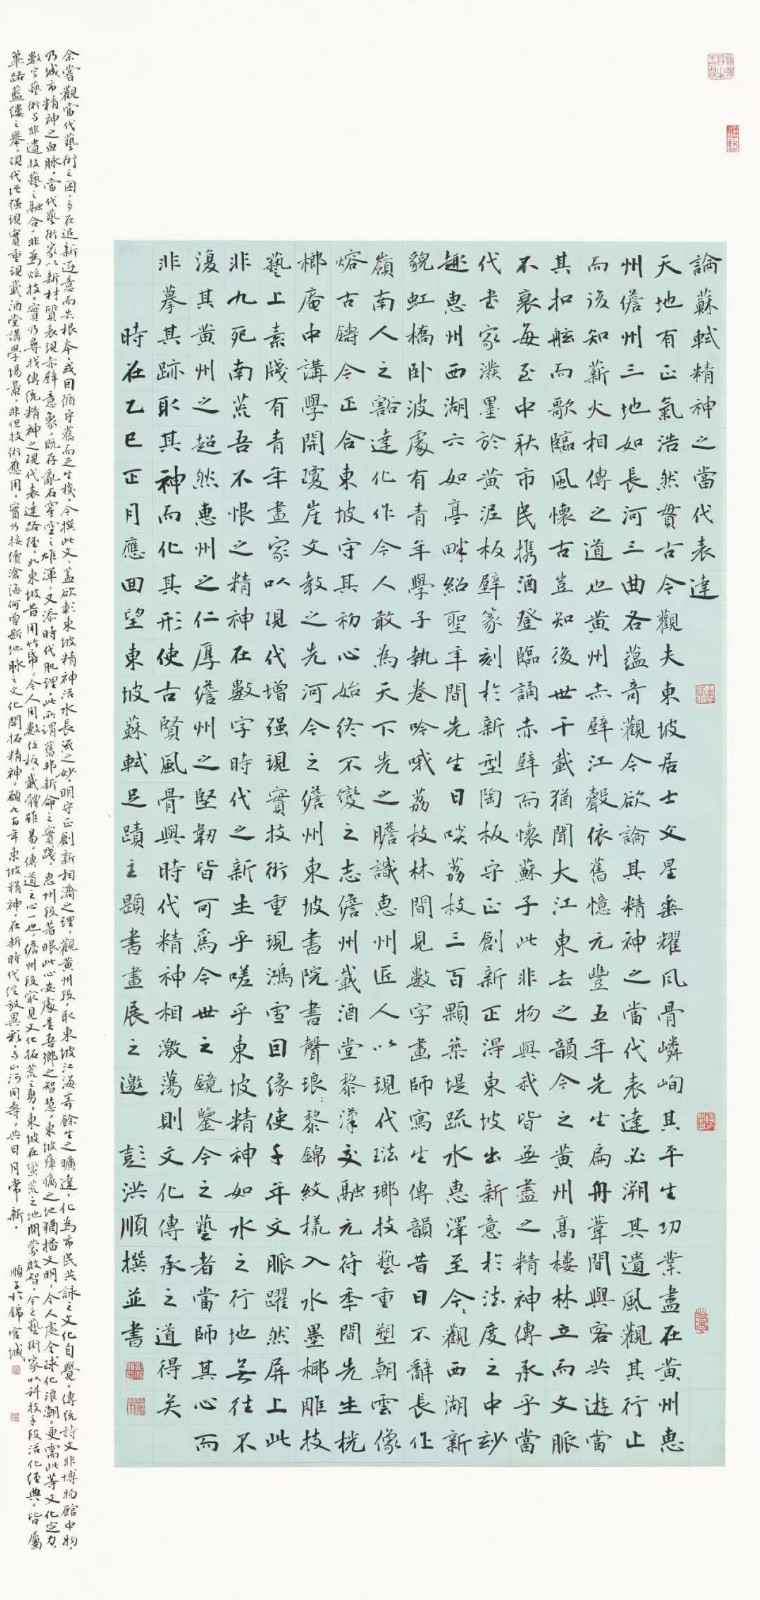 論蘇軾精神之當代表達
天地有正氣浩然貫古今觀夫東坡居士文星垂耀風骨嶙峋其平生功業盡在黃州惠
州儋州三地如長河三曲各蘊奇觀今欲論其精神之當代表達必溯其遺風觀其行止
而後知薪火相傳之道也黃州赤壁江聲依舊憶元豐五年先生扁舟葦間與客共遊當
其扣舷而歌臨風懷古豈知後世千載猶聞大江東去之韻今之黃州高樓林立而文脈
不衰每至中秋市民携酒登臨誦赤壁而懷蘇子此非物與我皆無盡之精神傳承乎當
代書家潑墨於黃泥板壁篆刻於新型陶板守正創新正得東坡出新意於法度之中妙
趣惠州西湖六如亭畔紹聖年間先生日啖荔枝三百顆築堤疏水惠澤至今觀西湖新
貌虹橋臥波處有青年學子執卷吟哦荔枝林間見數字畫師寫生傳韻昔日不辭長作
嶺南人之豁達化作今人敢為天下先之膽識惠州匠人以現代琺瑯技藝重塑朝雲像
熔古鑄今正合東坡守其初心始終不變之志儋州載酒堂黎漢交融元符年間先生桄
榔庵中講學開瓊崖文教之先河今之儋州東坡書院書聲琅黎錦紋樣入水墨椰雕技
藝上素牋有青年畫家以現代增强現實技術重現鴻雪回緣使千年文脈躍然屏上此
非九死南荒吾不恨之精神在數字時代之新生乎嗟乎東坡精神如水之行地無往不
復其黃州之超然惠州之仁厚儋州之堅韌皆可為今世之鏡鑒今之藝者當師其心而
非摹其跡取其神而化其形使古賢風骨與時代精神相激蕩則文化傳承之道得矣
時在乙巳正月應回望東坡蘇軾足蹟主題書畫展之邀 彭洪順撰並書
余嘗觀當代藝術之困，多在追新逐意而失根本，或因循守舊而乏生機，今撰此文，蓋欲彰東坡精神活水長流之妙，明守正創新相濟之理，觀黃州段，取東坡江海寄餘生之曠達，化為市民共詠之文化自覺，傳統詩文非博物館中物，
乃城市精神之血脈，當代藝術家以新材質表現赤壁意象，既存亂石穿空之雄渾，又添時代肌理，此所謂舊邦新命之實踐，惠州段著眼此心安處是吾鄉之智慧，東坡瘴癘之地猶播文明，今人處全球化浪潮，更需此等文化定力，
數字藝術與非遺技藝之融合，非為炫技，實乃尋找傳統精神之現代表達路徑，如東坡昔用竹筆，今人用數位板，載體雖易，傳道之心一也，儋州段家見文化拓荒之勇，東坡在蠻荒之地開蒙啟智，今之藝術家以科技手段活化經典，皆屬
篳路藍縷之舉，現代增强現實重現載酒堂講學場景，非但技術應用，實乃接續滄海何曾斷地脈之文化開拓精神，願九百年東坡精神，在新時代綻放異彩，與山河同壽，共日月常新。 順子於錦官城